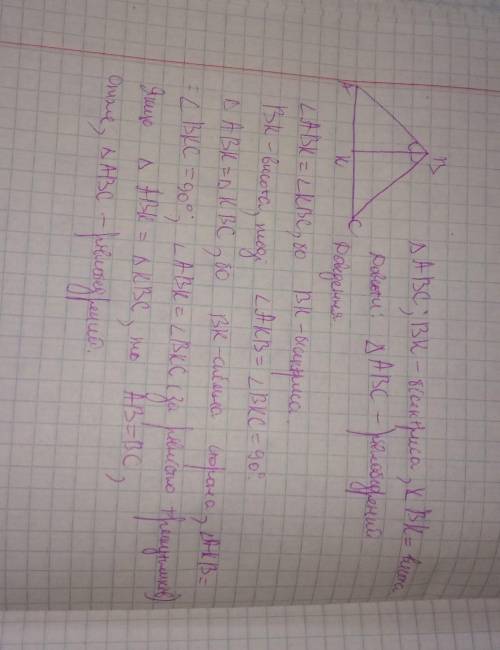 B
A
K
C
△ABC; BK - бісектриса, BK = висота
Довести: △ABC - рівнобедрений
Доведення
∠ABK = ∠KBC, бо BK - бісектриса.
BK - висота, тоді ∠AKB = ∠BKC = 90°
△ABK = △KBC, бо BK - спільна сторона, ∠AKB =
= ∠BKC = 90°, ∠ABK = ∠BKC (за рівністю трикутників)
Якщо △ABK = △KBC, то AB = BC,
отже, △ABC - рівнобедрений.